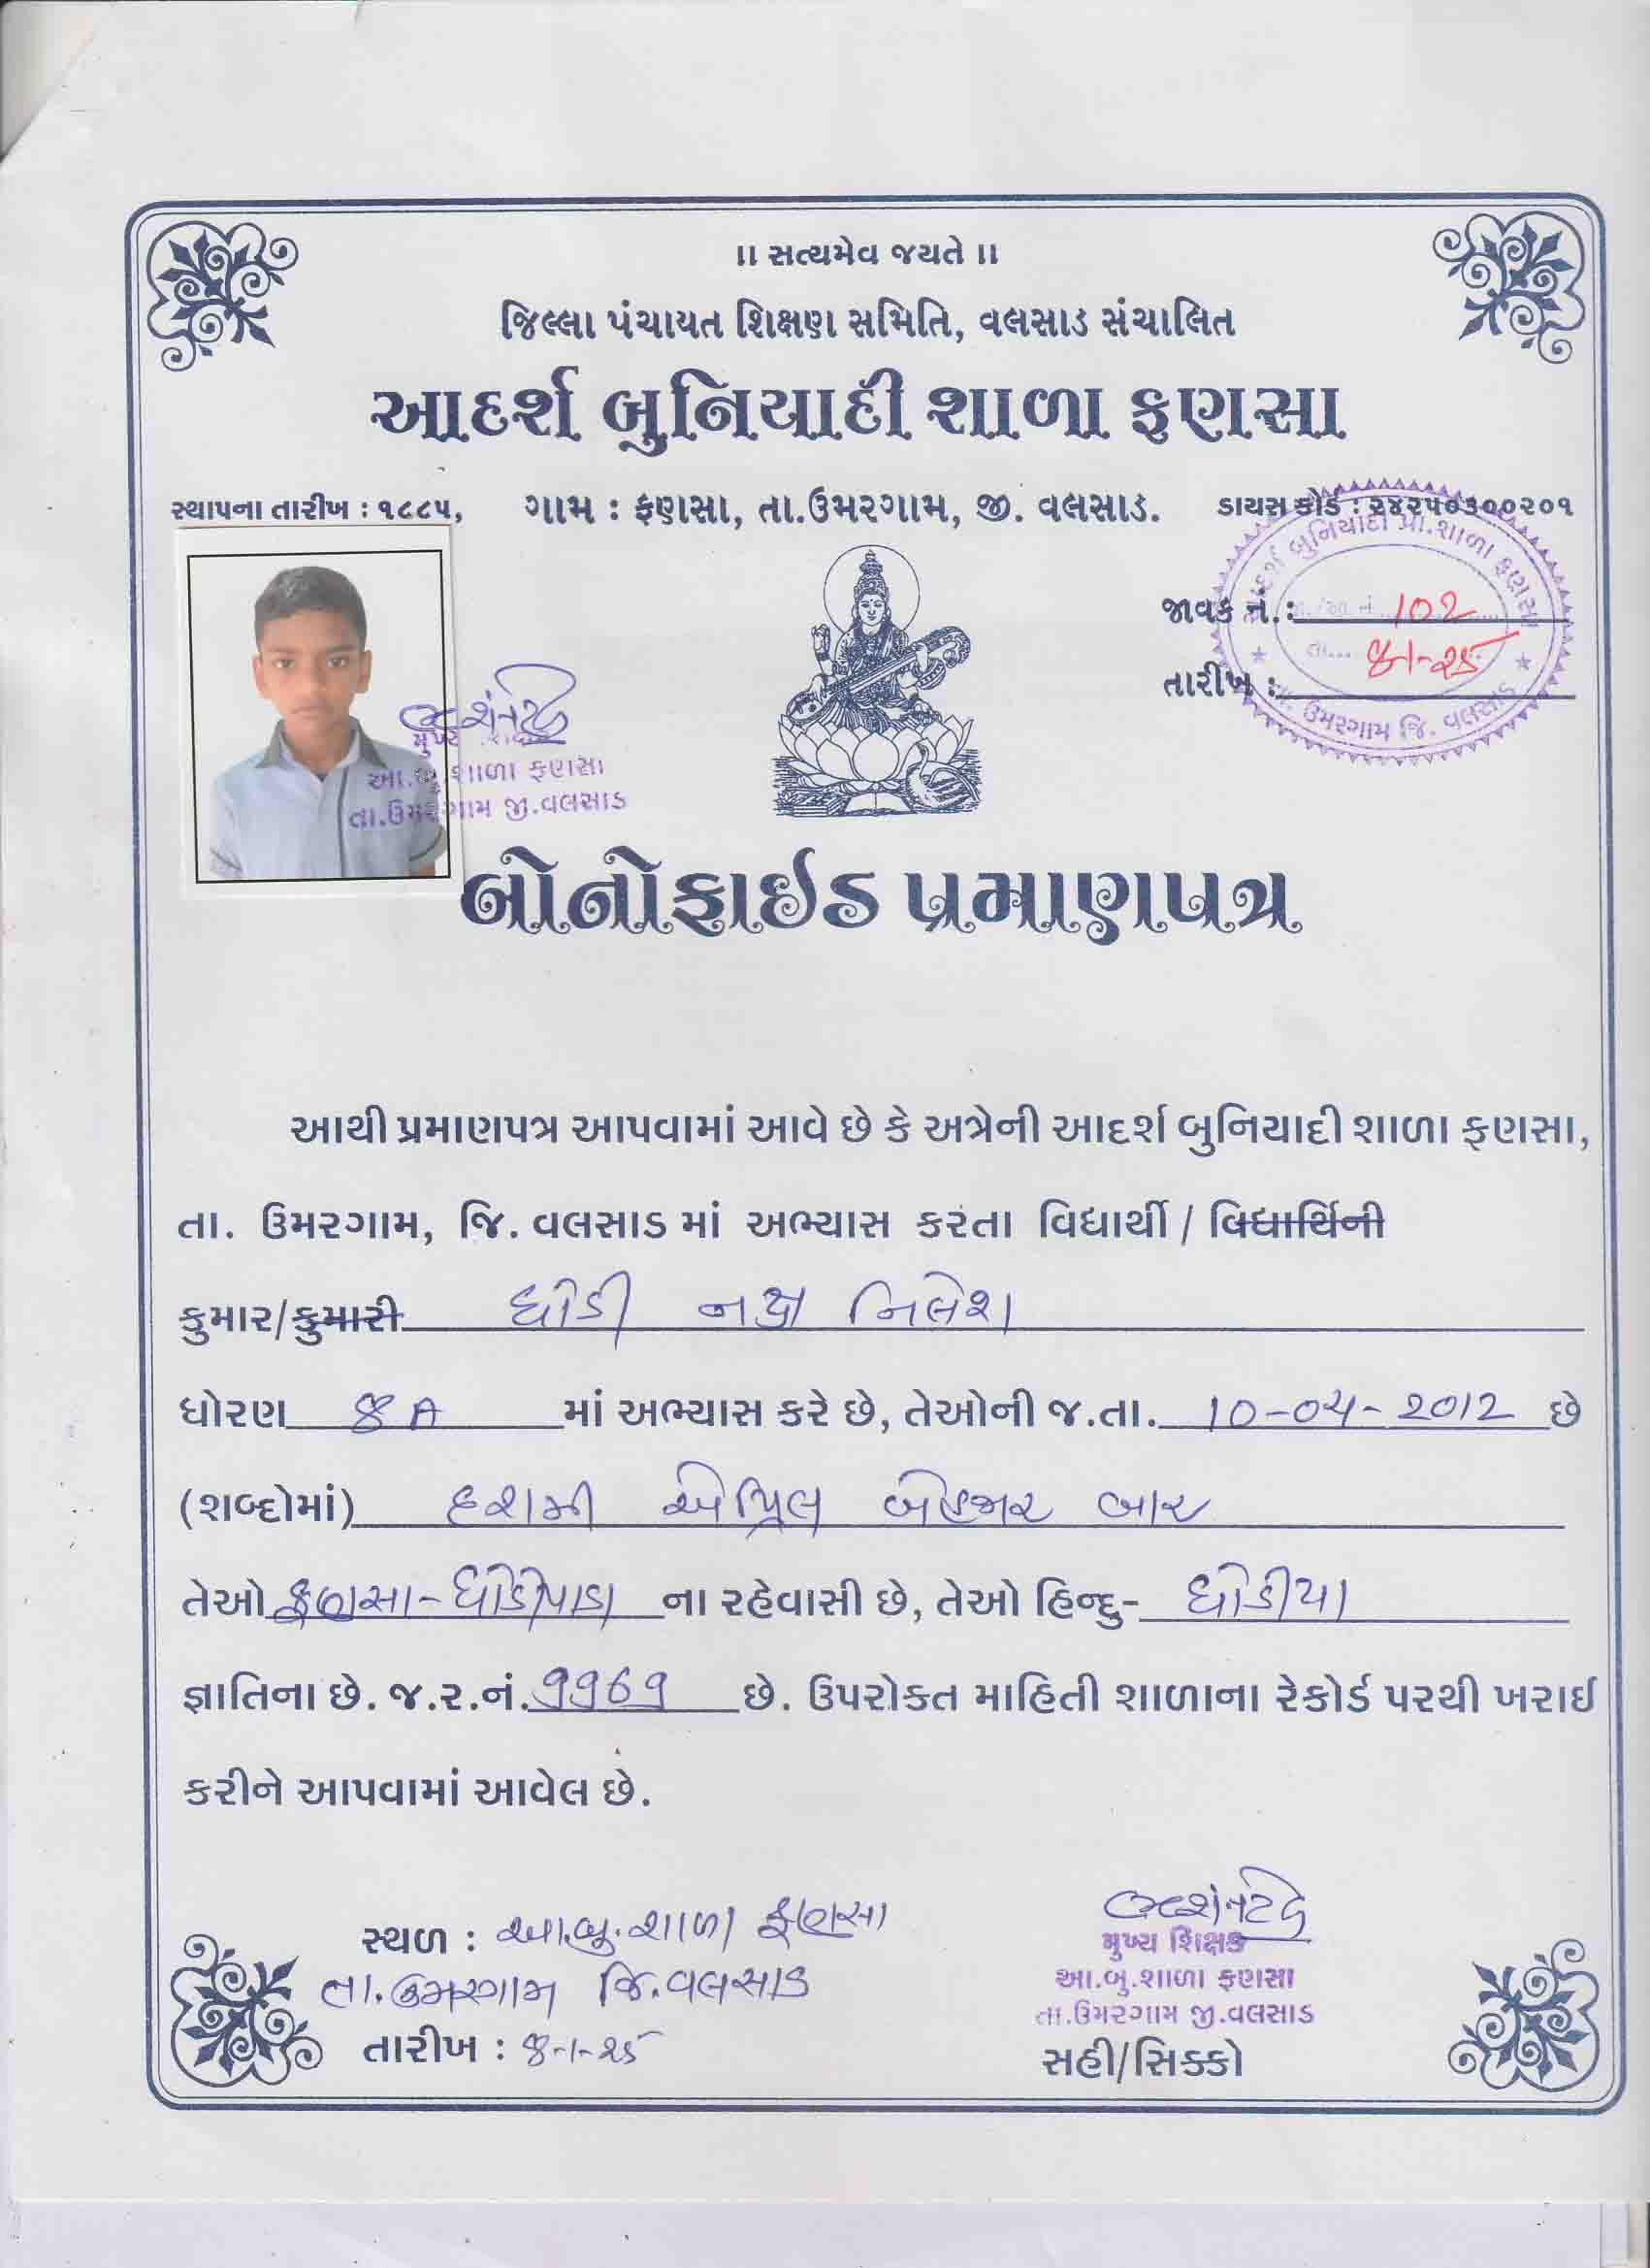 ॥ સત્યમેવ જયતે ॥
જિલ્લા પંચાયત શિક્ષણ સમિતિ, વલસાડ સંચાલિત
આદર્શ બુનિયાદી શાળા ફણસા
સ્થાપના તારીખ : ૧૮૮૫, ગામ : ફણસા, તા.ઉમરગામ, જી. વલસાડ. ડાયસ કોડ : ૨૪૨૫૦૩૦૦૨૦૧
આદર્શ બુનિયાદી પ્રા.શાળા ફણસા
જાવક નં.: 102
તારીખ : ૪-૧-૨૫
તા. ઉમરગામ જિ. વલસાડ
મુખ્ય
આ.બુ.શાળા ફણસા
તા.ઉમરગામ જી.વલસાડ
બોનોફાઈડ પ્રમાણપત્ર
આથી પ્રમાણપત્ર આપવામાં આવે છે કે અત્રેની આદર્શ બુનિયાદી શાળા ફણસા,
તા. ઉમરગામ, જિ. વલસાડ માં અભ્યાસ કરતા વિદ્યાર્થી / વિદ્યાર્થિની
કુમાર/કુમારી ધોડી નક્ષ નિલેશ
ધોરણ 8 A માં અભ્યાસ કરે છે, તેઓની જ.તા. 10-04-2012 છે
(શબ્દોમાં) દશમી એપ્રિલ બેહજાર બાર
તેઓ ફણસા-ધોડીપાડા ના રહેવાસી છે, તેઓ હિન્દુ- ધોડીયા
જ્ઞાતિના છે. જ.ર.નં. છે. ઉપરોક્ત માહિતી શાળાના રેકોર્ડ પરથી ખરાઈ
કરીને આપવામાં આવેલ છે.
સ્થળ : આ.બુ.શાળા ફણસા
તા.ઉમરગામ જિ.વલસાડ
તારીખ : ૪-૧-૨૫
મુખ્ય શિક્ષક
આ.બુ.શાળા ફણસા
તા.ઉમરગામ જી.વલસાડ
સહી/સિક્કો